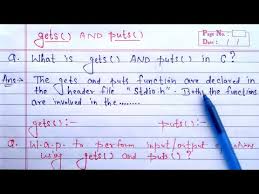 gets() AND puts()
Page No.
Date: / /
Q. What is gets() AND puts() in C?
Ans:- The gets and puts function are declared in
the header file "Stdio.h". Both the functions
are involved in the........
gets():- puts():-
Q. W.a.p. to perform input/output operations
using gets() and puts()?